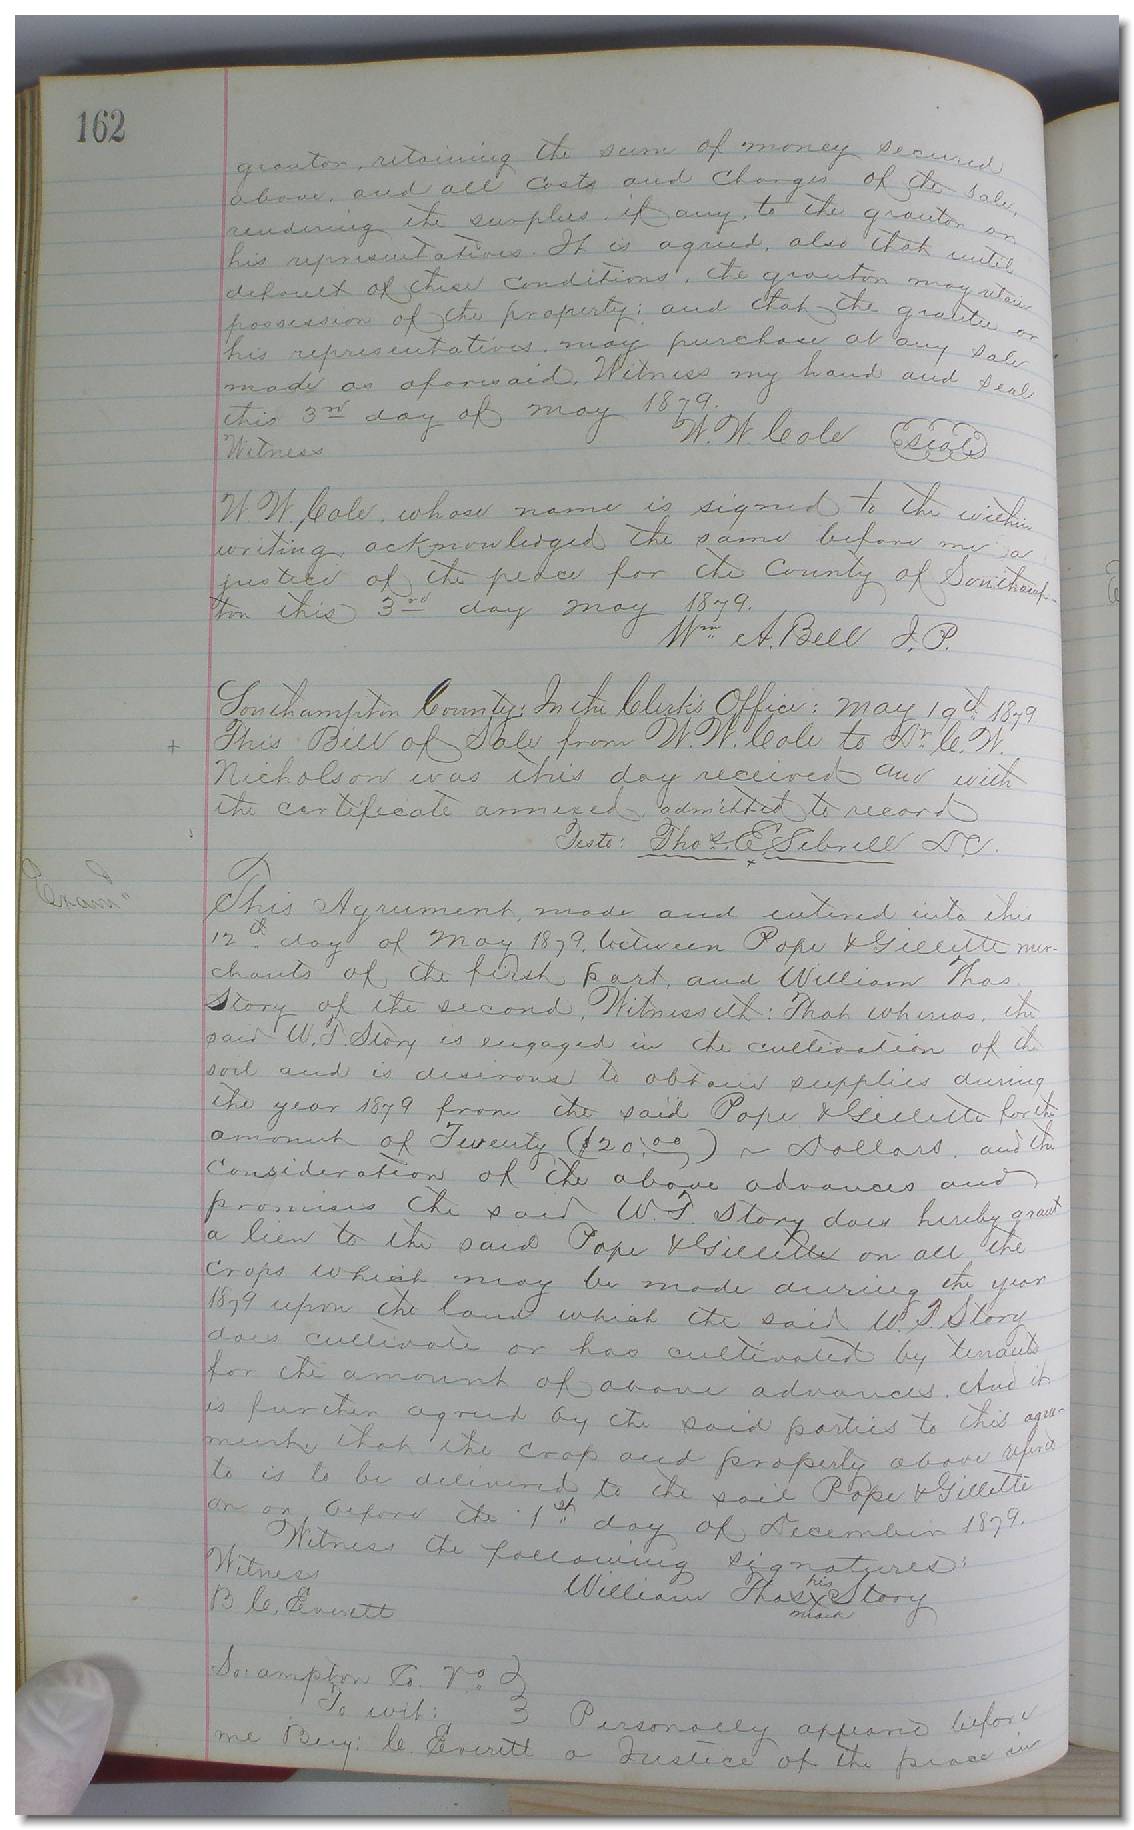 162
grantor, retaining the sum of money secured
above, and all costs and charges of the sale,
rendering the surplus if any, to the grantor or
his representatives. It is agreed, also that until
default of these conditions, the grantor may retain
possession of the property; and that the grantee or
his representatives, may purchase at any sale
made as aforesaid. Witness my hand and seal
this 3rd day of May 1879.
W. W. Cole (seal)
Witness
W. W. Cole, whose name is signed to the within
writing, acknowledged the same before me a
justice of the peace for the County of Southamp-
ton this 3rd day May 1879.
Wm A. Bell J. P.
Southampton County: In the Clerk's Office: May 19th 1879
+ This Bill of Sale from W. W. Cole to Dr. C. W.
Nicholson was this day received and with
the certificate annexed admitted to record
Teste: Thos. E. Sebrell D.C.
Exam"
This Agreement, made and entered into this
12th day of May 1879, between Pope & Gillette mer-
chants of the first part, and William Thos
Story of the second, Witnesseth: That whereas, the
said W. T. Story is engaged in the cultivation of the
soil and is desirous to obtain supplies during
the year 1879 from the said Pope & Gillette for the
amount of Twenty ($20.00) ~ Dollars, and the
consideration of the above advances and
promises the said W. T. Story does hereby grant
a lien to the said Pope & Gillette on all the
crops which may be made during the year
1879 upon the land which the said W. T. Story
does cultivate or has cultivated by tenants
for the amount of above advances. And it
is further agreed by the said parties to this agree-
ment, that the crop and property above
to is to be delivered to the said Pope & Gillette
on or before the 1st day of December 1879.
Witness the following signatures:
Witness
William Thos his X mark Story
B. C. Everett
So:ampton Co. Va
To wit: Personally appeared before
me Benj: C. Everett a Justice of the peace in